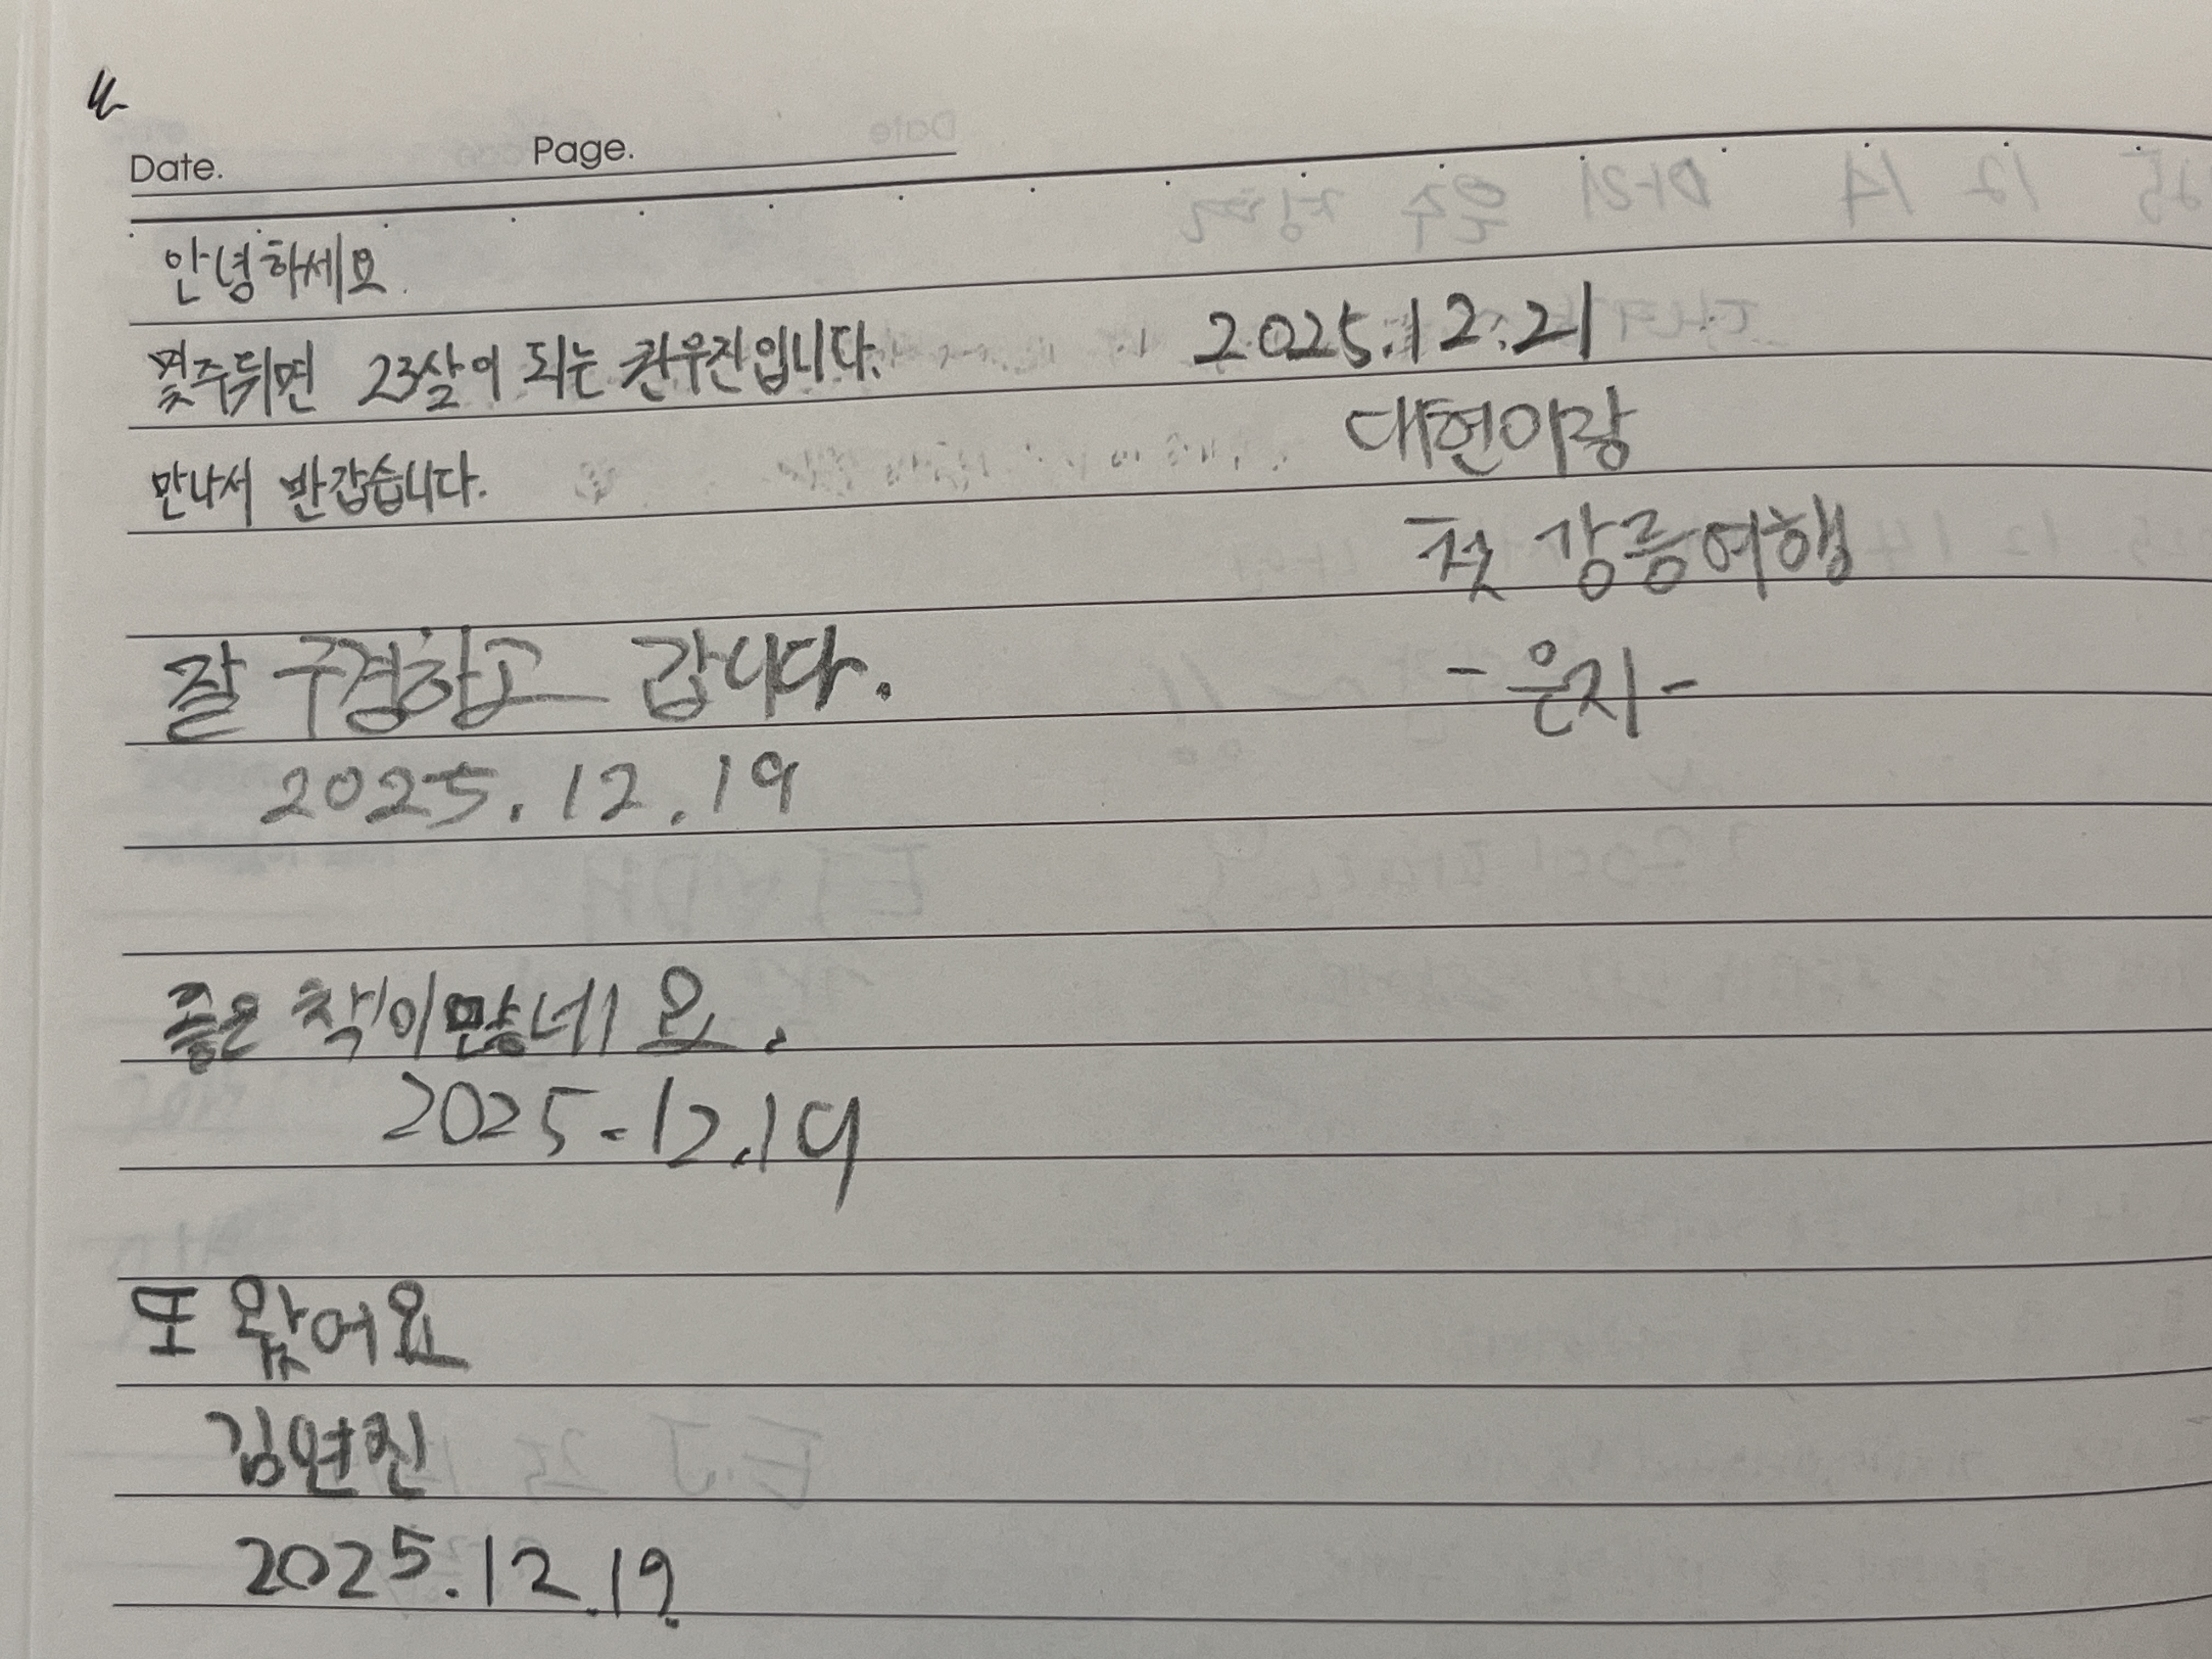 Date. Page.
안녕하세요.
몇주뒤면 23살이 되는 권우진입니다.
만나서 반갑습니다.
잘 구경하고 갑니다.
2025.12.19
좋은 책이많네요.
2025-12.19
또 왔어요
김연진
2025.12.19.
2025.12.21
대현이랑
첫 강릉여행
-은지-